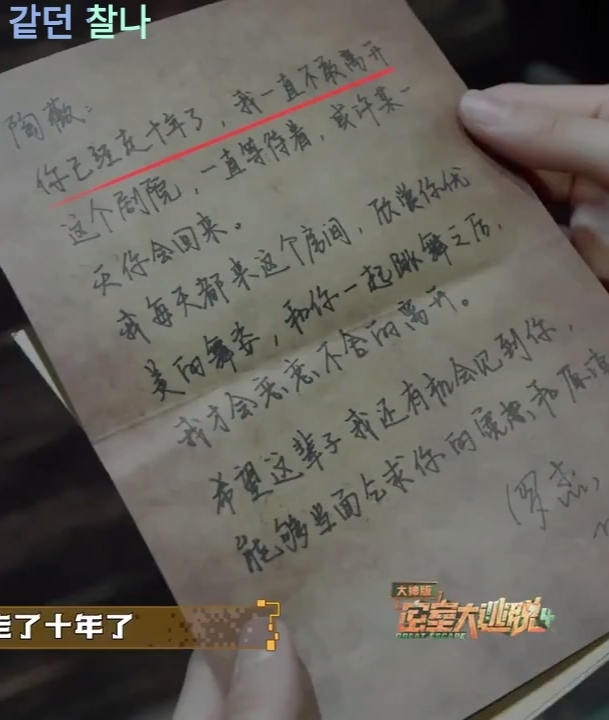 같던 찰나
陶薇：
你已经走十年了，我一直不敢离开
这个剧院，一直等待着，或许某一
天你会回来。
我每天都来这个房间，欣赏你优
美的舞姿，和你一起跳舞之后，
我才会恋恋不舍的离开。
希望这辈子我还有机会见到你，
能够当面乞求你的宽恕和原谅
罗杰，
走了十年了
大神版
密室大逃脱4
GREAT ESCAPE